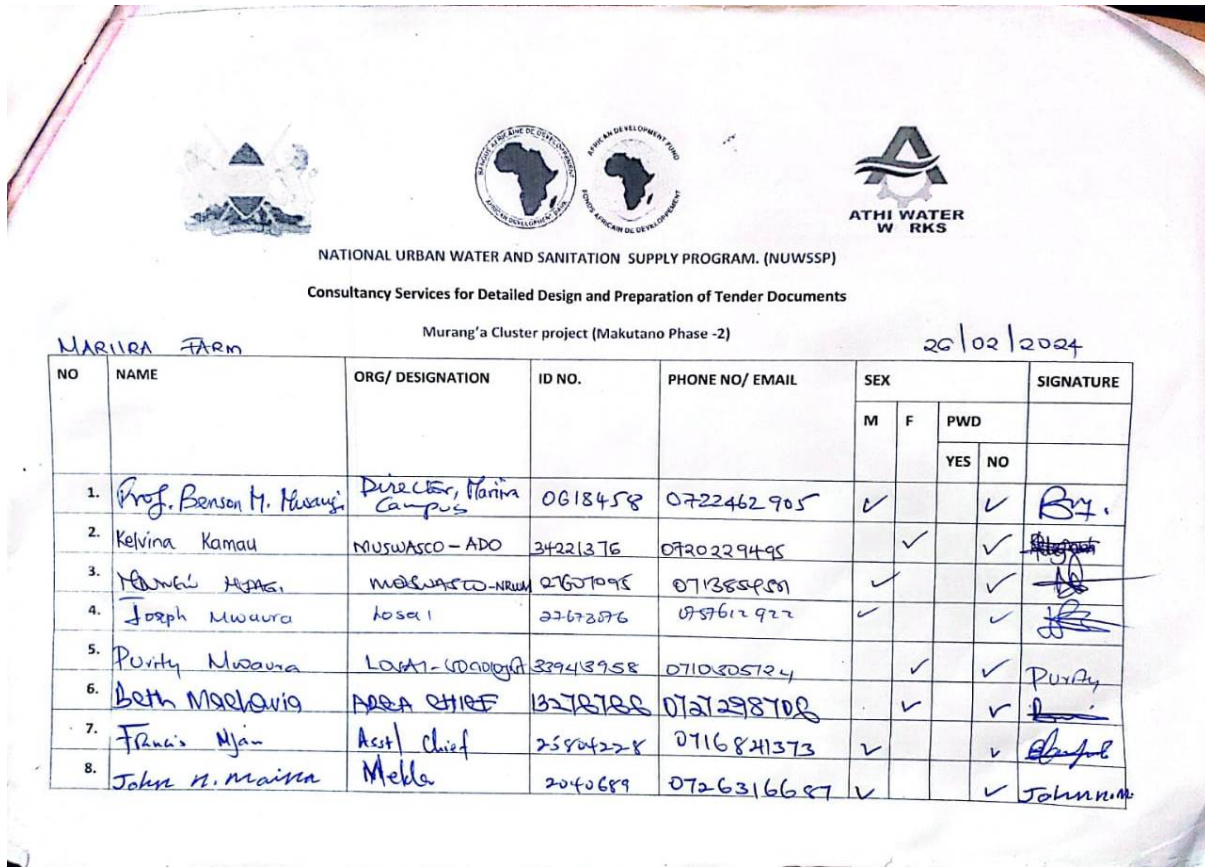 BANQUE AFRICAINE DE DEVELOPPEMENT
AFRICAN DEVELOPMENT BANK
AFRICAN DEVELOPMENT FUND
FONDS AFRICAIN DE DEVELOPPEMENT
ATHI WATER
W RKS
NATIONAL URBAN WATER AND SANITATION SUPPLY PROGRAM. (NUWSSP)
Consultancy Services for Detailed Design and Preparation of Tender Documents
Murang'a Cluster project (Makutano Phase -2)
MARIIRA FARM 26/02/2024
NO NAME ORG/ DESIGNATION ID NO. PHONE NO/ EMAIL SEX SIGNATURE
M F PWD
YES NO
1. Prof. Benson M. Director, Mariira Campus 0618458 0722462905 ✓ ✓
2. Kelvina Kamau MUSWASCO - ADO 34221376 0720229495 ✓ ✓
3. ✓ ✓
4. Joseph Mwaura 0757612922 ✓ ✓
5. Purity Mwaura 339413958 ✓ ✓ Purity
6. Beth Macharia AREA CHIEF 13278788 0727298708 ✓ ✓
7. Francis Asst/ Chief 25804228 0716841373 ✓ ✓
8. John n. maina 2040689 0726316687 ✓ ✓ John n.m.